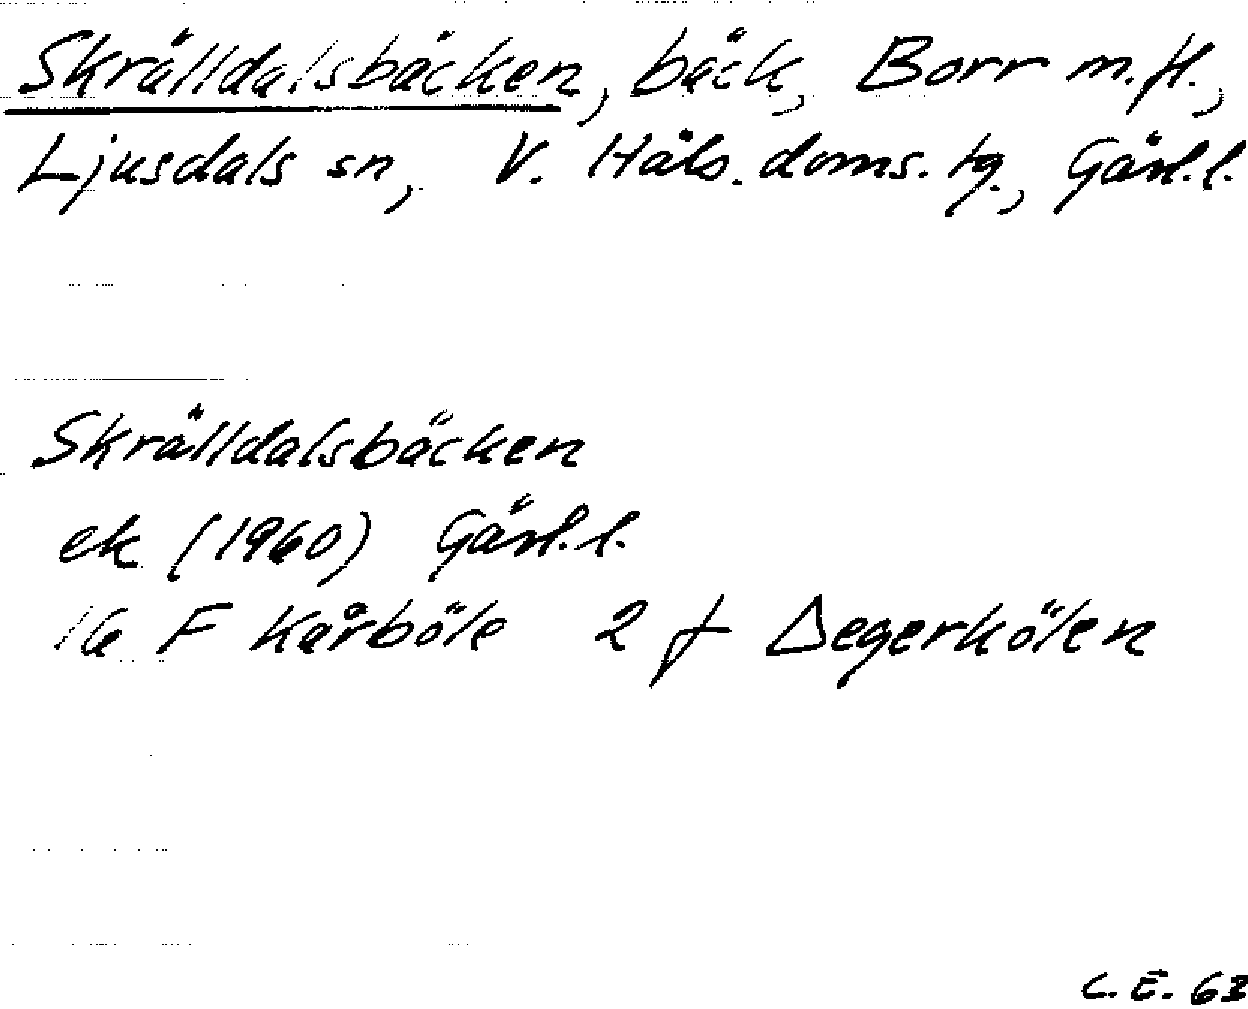 Skrålldalsbäcken, bäck, Borr m.fl.,
Ljusdals sn, V. Häls. doms. tg., Gävl.l.
Skrålldalsbäcken
ek (1960) Gävl.l.
16 F Kårböle 2 f Degerkölen
C.E. 63